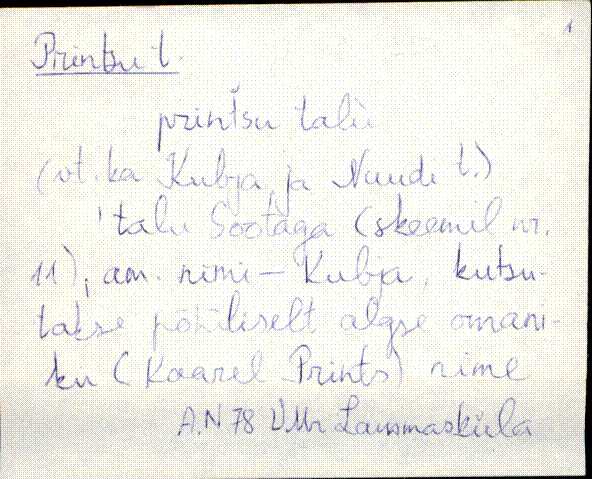 1
Printsu t.
printšu talu
(vt. ka Kubja ja Nuudi t.)
'talu Sootaga (skeemil nr.
11), am. nimi - Kubja, kutsu-
takse põhiliselt algse omani-
ku (Kaarel Prints) nime
A.N 78 VMr Lausmasküla